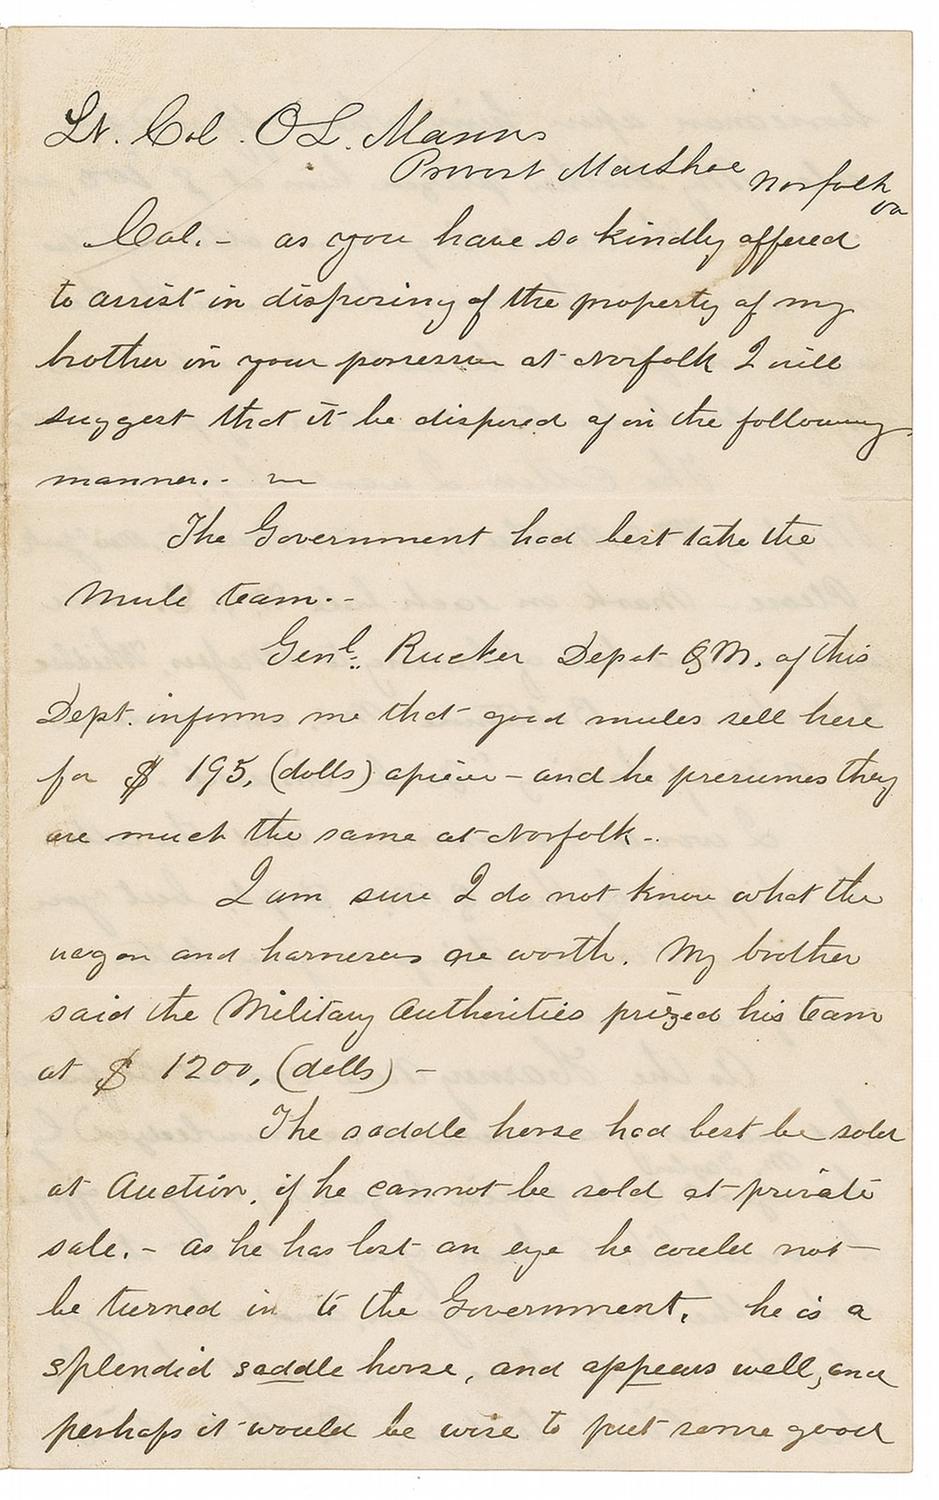 Lt. Col. O L. Manns
Provost Marshal Norfolk
va
Col. - as you have so kindly offered
to assist in disposing of the property of my
brother in your possession at Norfolk I will
suggest that it be disposed of in the following
manner. -
The Government had best take the
Mule team. -
Genl. Rucker Depot QM. of this
Dept. informs me that good mules sell here
for $ 195, (dolls) apiece - and he presumes they
are much the same at Norfolk -.
I am sure I do not know what the
wagon and harnesses are worth. My brother
said the Military Authorities prized his team
at $ 1200, (dolls) -
The saddle horse had best be sold
at Auction, if he cannot be sold at private
sale. - As he has lost an eye he could not
be turned in to the Government. he is a
splendid saddle horse, and appears well, and
perhaps it would be wise to put some good